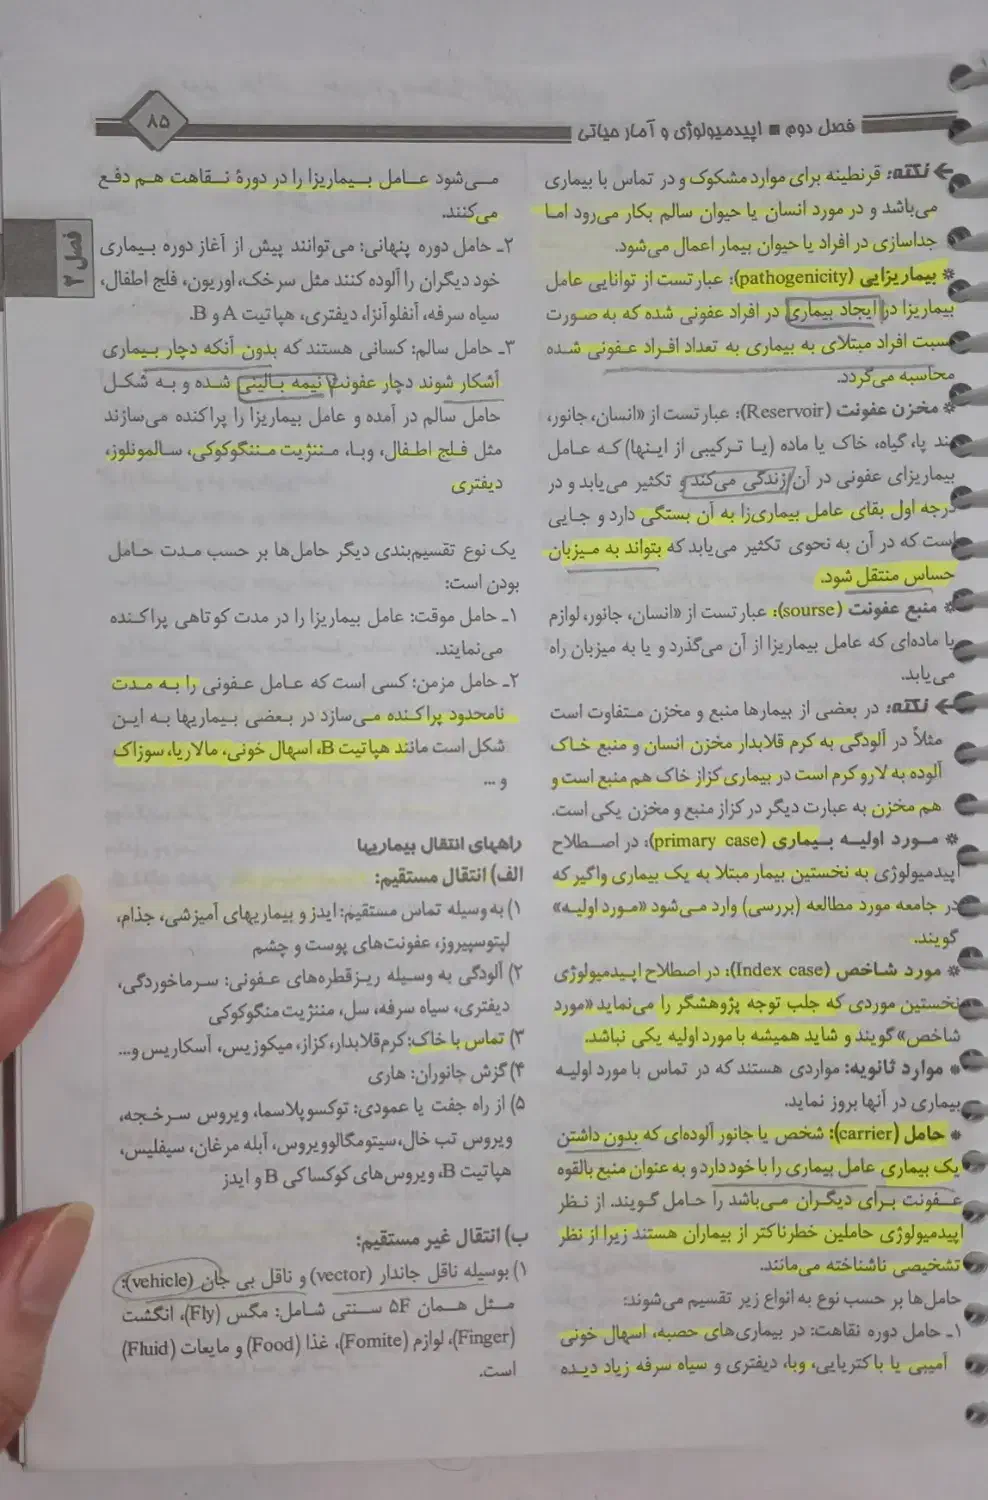 فصل دوم ■ اپیدمیولوژی و آمار حیاتی
۸۵
فصل ۲
نکته: قرنطینه برای موارد مشکوک و در تماس با بیماری
می‌باشد و در مورد انسان یا حیوان سالم بکار می‌رود اما
جداسازی در افراد یا حیوان بیمار اعمال می‌شود.
* بیماریزایی (pathogenicity): عبارتست از توانایی عامل
بیماریزا در ایجاد بیماری در افراد عفونی شده که به صورت
نسبت افراد مبتلای به بیماری به تعداد افراد عفونی شده
محاسبه می‌گردد.
* مخزن عفونت (Reservoir): عبارتست از «انسان، جانور،
بند پا، گیاه، خاک یا ماده (یا ترکیبی از اینها) که عامل
بیماریزای عفونی در آن زندگی می‌کند و تکثیر می‌یابد و در
درجه اول بقای عامل بیماری‌زا به آن بستگی دارد و جایی
است که در آن به نحوی تکثیر می‌یابد که بتواند به میزبان
حساس منتقل شود.
* منبع عفونت (sourse): عبارتست از «انسان، جانور، لوازم
یا ماده‌ای که عامل بیماریزا از آن می‌گذرد و یا به میزبان راه
می‌یابد.
نکته: در بعضی از بیمارها منبع و مخزن متفاوت است
مثلاً در آلودگی به کرم قلابدار مخزن انسان و منبع خاک
آلوده به لارو کرم است در بیماری کزاز خاک هم منبع است و
هم مخزن به عبارت دیگر در کزاز منبع و مخزن یکی است.
* مورد اولیه بیماری (primary case): در اصطلاح
اپیدمیولوژی به نخستین بیمار مبتلا به یک بیماری واگیر که
در جامعه مورد مطالعه (بررسی) وارد می‌شود «مورد اولیه»
گویند.
* مورد شاخص (Index case): در اصطلاح اپیدمیولوژی
نخستین موردی که جلب توجه پژوهشگر را می‌نماید «مورد
شاخص» گویند و شاید همیشه با مورد اولیه یکی نباشد.
* موارد ثانویه: مواردی هستند که در تماس با مورد اولیه
بیماری در آنها بروز نماید.
* حامل (carrier): شخص یا جانور آلوده‌ای که بدون داشتن
یک بیماری عامل بیماری را با خود دارد و به عنوان منبع بالقوه
عفونت برای دیگران می‌باشد را حامل گویند. از نظر
اپیدمیولوژی حاملین خطرناکتر از بیماران هستند زیرا از نظر
تشخیصی ناشناخته می‌مانند.
حامل‌ها بر حسب نوع به انواع زیر تقسیم می‌شوند:
۱ـ حامل دوره نقاهت: در بیماری‌های حصبه، اسهال خونی
آمیبی یا باکتریایی، وبا، دیفتری و سیاه سرفه زیاد دیده
می‌شود عامل بیماریزا را در دورهٔ نقاهت هم دفع
می‌کنند.
۲ـ حامل دوره پنهانی: می‌توانند پیش از آغاز دوره بیماری
خود دیگران را آلوده کنند مثل سرخک، اوریون، فلج اطفال،
سیاه سرفه، آنفلوآنزا، دیفتری، هپاتیت A و B.
۳ـ حامل سالم: کسانی هستند که بدون آنکه دچار بیماری
آشکار شوند دچار عفونت نیمه بالینی شده و به شکل
حامل سالم در آمده و عامل بیماریزا را پراکنده می‌سازند
مثل فلج اطفال، وبا، مننژیت مننگوکوکی، سالمونلوز،
دیفتری
یک نوع تقسیم‌بندی دیگر حامل‌ها بر حسب مدت حامل
بودن است:
۱ـ حامل موقت: عامل بیماریزا را در مدت کوتاهی پراکنده
می‌نمایند.
۲ـ حامل مزمن: کسی است که عامل عفونی را به مدت
نامحدود پراکنده می‌سازد در بعضی بیماریها به این
شکل است مانند هپاتیت B، اسهال خونی، مالاریا، سوزاک
و ...
راههای انتقال بیماریها
الف) انتقال مستقیم:
۱) به وسیله تماس مستقیم: ایدز و بیماریهای آمیزشی، جذام،
لپتوسپیروز، عفونت‌های پوست و چشم
۲) آلودگی به وسیله ریزقطره‌های عفونی: سرماخوردگی،
دیفتری، سیاه سرفه، سل، مننژیت منگوکوکی
۳) تماس با خاک: کرم قلابدار، کزاز، میکوزیس، آسکاریس و...
۴) گزش جانوران: هاری
۵) از راه جفت یا عمودی: توکسوپلاسما، ویروس سرخجه،
ویروس تب خال، سیتومگالوویروس، آبله مرغان، سیفلیس،
هپاتیت B، ویروس‌های کوکساکی B و ایدز
ب) انتقال غیر مستقیم:
۱) بوسیله ناقل جاندار (vector) و ناقل بی جان (vehicle):
مثل همان ۵F سنتی شامل: مگس (Fly)، انگشت
(Finger)، لوازم (Fomite)، غذا (Food) و مایعات (Fluid)
است.